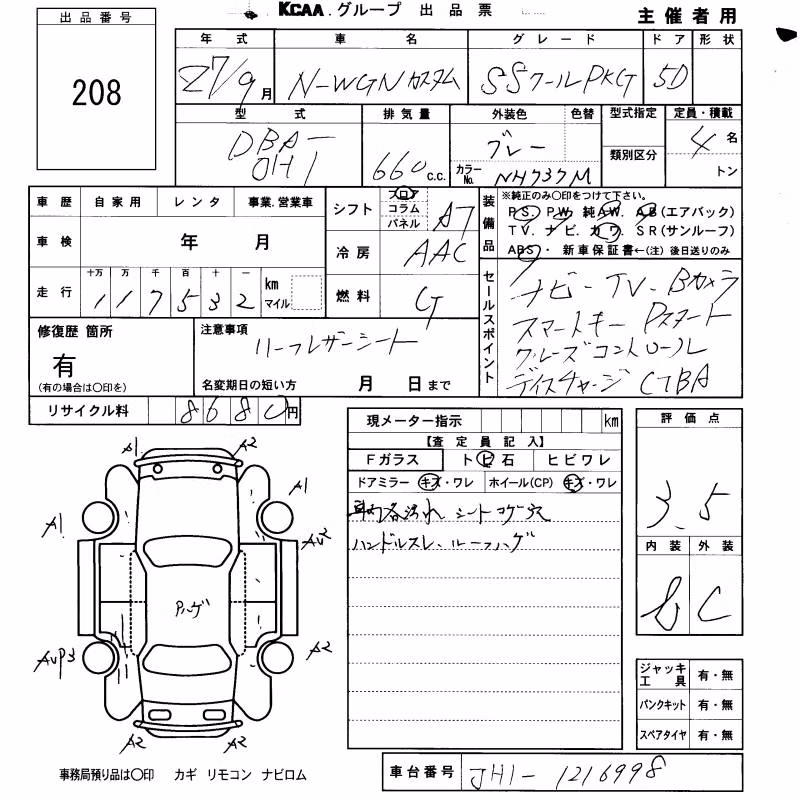 KCAA グループ 出品票
主催者用
出品番号
208
年式 車名 グレード ドア 形状
27/9月 N-WGNカスタム SSクールPKG 5D
型式 排気量 外装色 色替 型式指定 定員・積載
DBA-JH1 660c.c. グレー 類別区分 4名
カラーNo. NH737M トン
車歴 自家用 レンタ 事業.営業車
シフト フロア コラム パネル AT
装備品 ※純正のみ○印をつけて下さい。
PS. PW. 純AW. AB(エアバック)
TV. ナビ. カワ. SR(サンルーフ)
ABS・ 新車保証書←(注) 後日送りのみ
車検 年 月
冷房 AAC
走行 十万 万 千 百 十 一 km マイル
117532
燃料 G
セールスポイント
ナビ - TV - Bカメラ
スマートキー Pスタート
クルーズコントロール
ディスチャージ CTBA
修復歴 箇所
有
(有の場合は○印を)
注意事項
ハーフレザーシート
名変期日の短い方 月 日まで
リサイクル料 8680円
現メーター指示 km
【査定員記入】
Fガラス トビ石 ヒビワレ
ドアミラー キズ・ワレ ホイール(CP) キズ・ワレ
車内各汚れ シートコゲ穴
ハンドルスレ、ルーフハゲ
評価点
3.5
内装 外装
C
A1 A2
A1 A1
AU2
Pハゲ
AUP3 A2
A2 A2
ジャッキ工具 有・無
パンクキット 有・無
スペアタイヤ 有・無
事務局預り品は○印 カギ リモコン ナビロム
車台番号 JH1-1216998